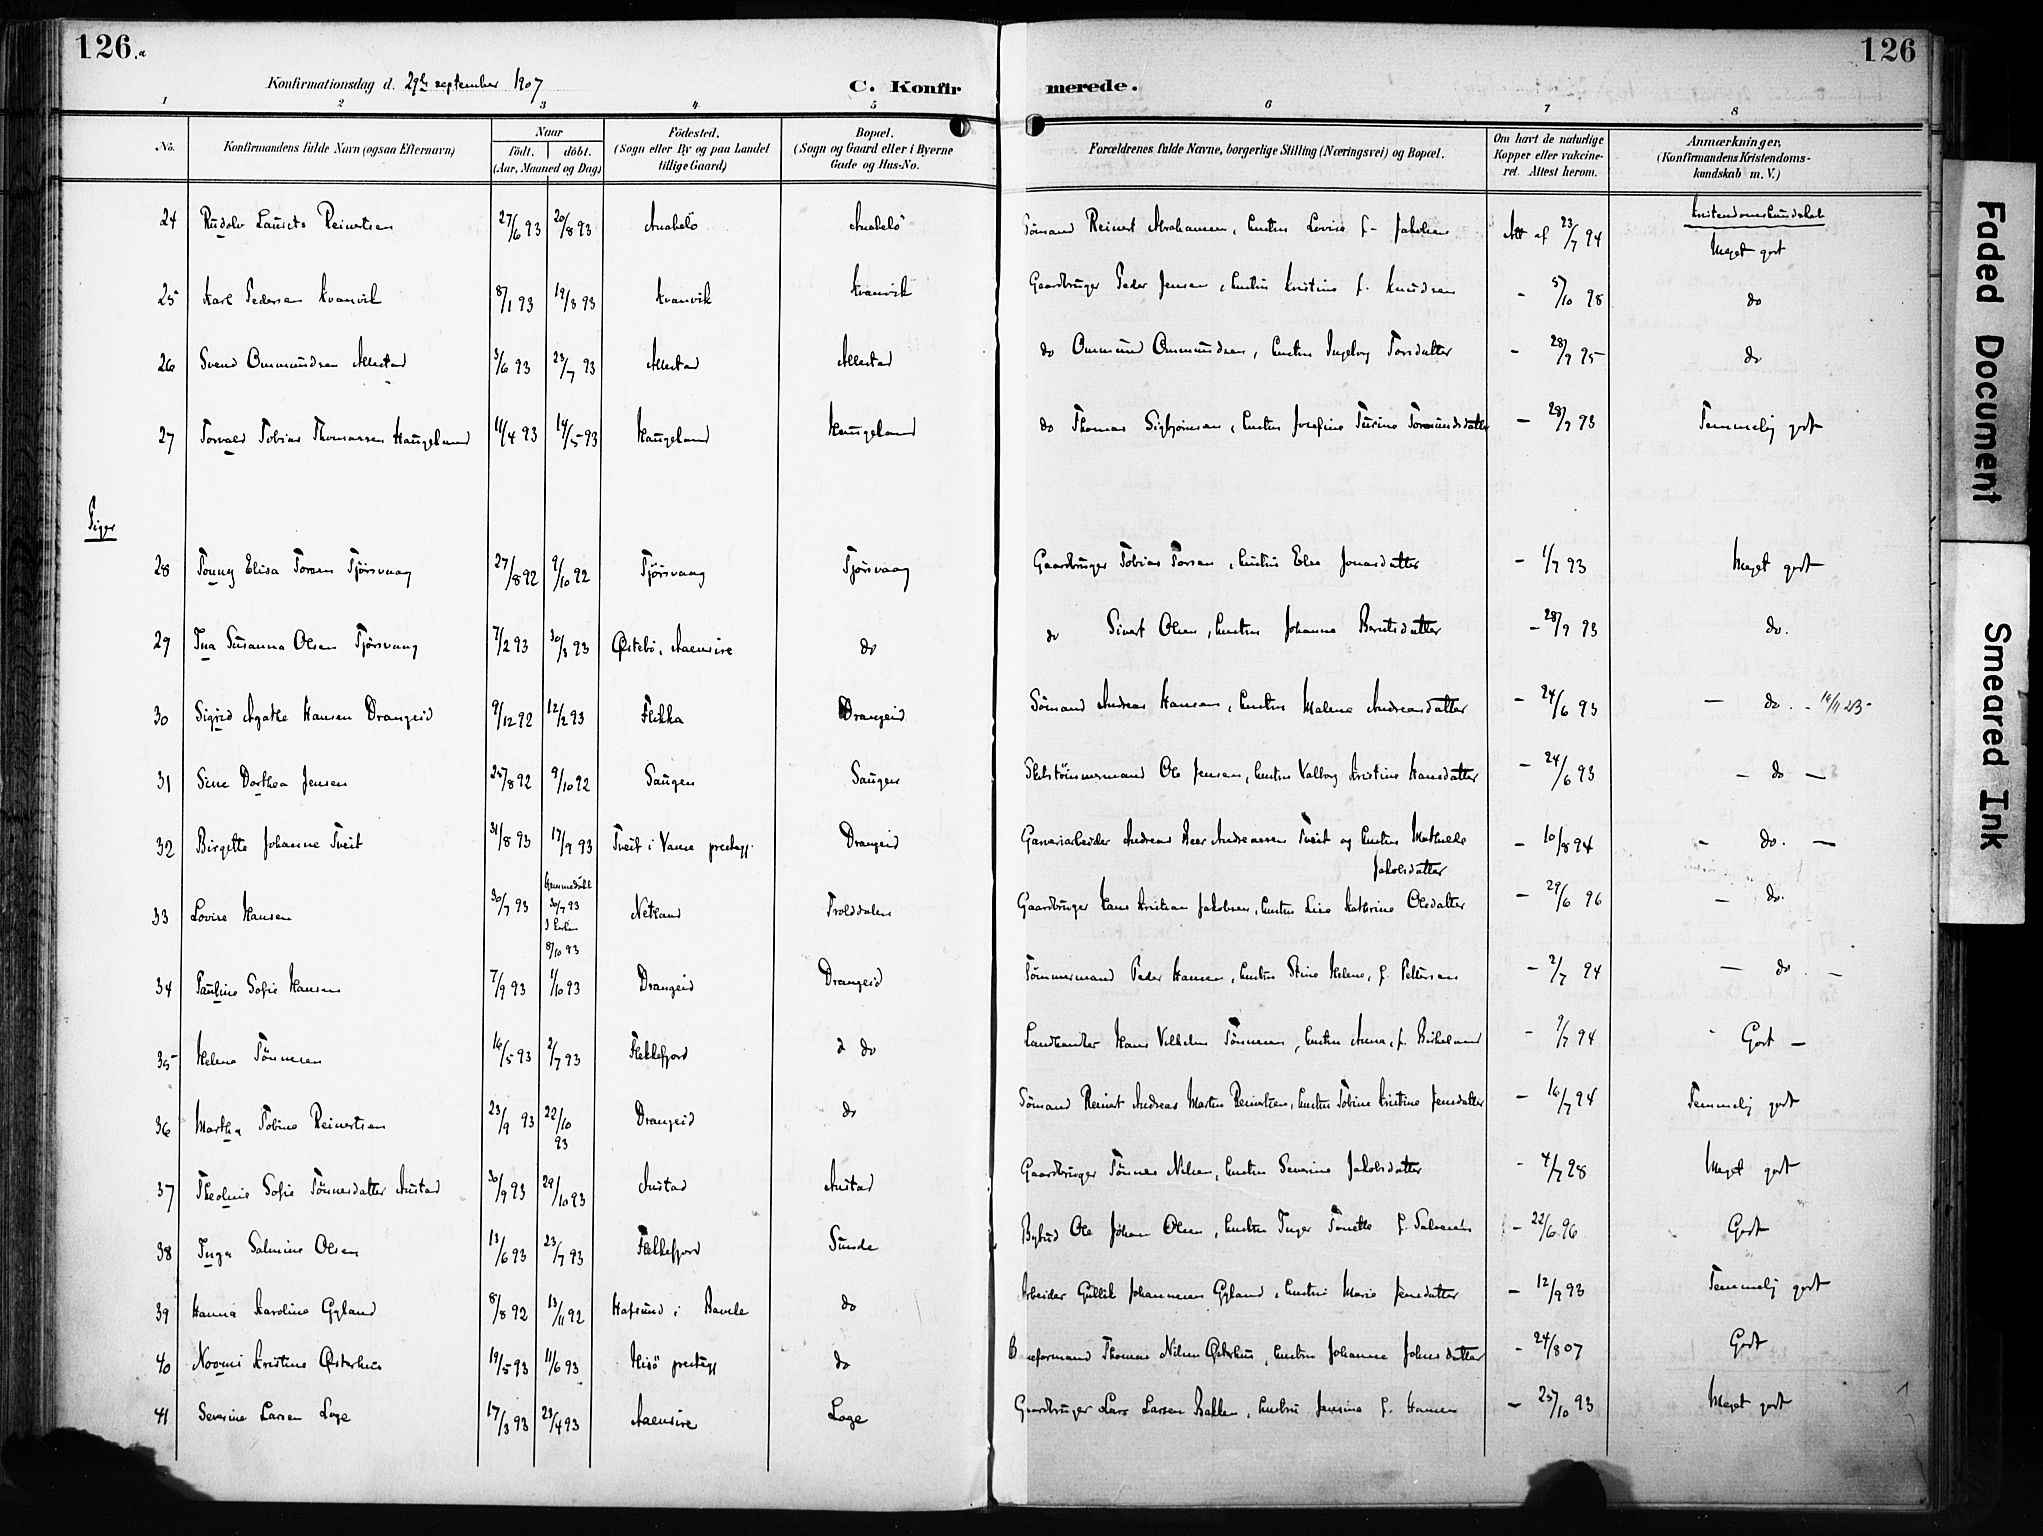 126.a
126
Konfirmationsdag d. 29de september 1907
C. Konfirmerede.
1 2 3 4 5 6 7 8
No. Konfirmandens fulde Navn (ogsaa Efternavn) Naar födt. döbt. (Aar, Maaned og Dag) Födested. (Sogn eller By og paa Landet tillige Gaard) Bopæl. (Sogn og Gaard eller i Byerne Gade og Hus-No. Forældrenes fulde Navne, borgerlige Stilling (Næringsvei) og Bopæl. Om havt de naturlige Kopper eller vakcineret. Attest herom. Anmærkninger, (Konfirmandens Kristendomskundskab m. V.)
Kristendomskundskab
24 Rudolv Laurits Reinertsen 27/6 93 20/8 93 Anabelö Anabelö Sömand Reinert Abrahamsen, Hustru Lovise f. Jakobsen Att af 23/7 94 Meget godt
25 Karl Pedersen Kvanvik 8/1 93 19/3 93 Kvanvik Kvanvik Gaardbruger Peder Jensen, Hustru Kristine f. Knudsen - 5/10 98 do
26 Svend Ommundsen Allestad 3/6 93 23/7 93 Allestad Allestad do Ommund Ommundsen, Hustru Ingeborg Torsdatter - 28/9 95 do
27 Torvald Tobias Thomassen Haugeland 11/4 93 14/5 93 Haugeland Haugeland do Thomas Sigbjörnsen, Hustru Josefine Turine Tormundsdatter - 28/9 93 Temmelig godt
Piger
28 Tonny Elisa Torsen Tjörsvaag 27/8 92 9/10 92 Tjörsvaag Tjörsvaag Gaardbruger Tobias Torsen, Hustru Elsa Jonasdatter - 1/7 93 Meget godt
29 Ina Susanna Olsen Tjörsvaag 7/2 93 30/3 93 Østebö, Aaensire do do Sivert Olsen, Hustru Johanna Berntsdatter - 28/9 93 do.
30 Sigrid Agathe Hansen Drangeid 9/12 92 12/2 93 Flikka Drangeid Sömand Andreas Hansen, Hustru Malene Andreasdatter - 24/6 93 - do. - 14/11 23
31 Sine Dorthea Jensen 25/8 92 9/10 92 Saugen Saugen Skibstömmermand Ole Jensen, Hustru Valborg Kristine Hansdatter - 24/6 93 - do -
32 Birgitte Johanne Tveit 31/8 93 17/9 93 Tveit i Vanse prestegj. Drangeid Garveriarbeider Andreas Beer Andreassen Tveit og Hustru Mathilde Jakobsdatter - 10/8 94 - do. -
33 Lovise Hansen 30/7 93 Hjemmedöbt 30/7 93 I Kirken 8/10 93 Netland Trolddalen Gaardbruger Hans Kristian Jakobsen, Hustru Lise Kathrine Olsdatter - 29/6 96 - do.
34 Pauline Sofie Hansen 7/9 93 1/10 93 Drangeid Drangeid Tömmermand Peder Hansen, Hustru Stine Helene, f. Pettersen - 2/7 94 - do. -
35 Helene Tönnesen 16/5 93 2/7 93 Flekkefjord do Landhandler Hans Vilhelm Tönnesen, Hustru Anna, f. Birkeland - 9/7 94 - Godt -
36 Martha Tobine Reinertsen 23/9 93 22/10 93 Drangeid do Sömand Reinert Andreas Martin Reinertsen, Hustru Tobine Kristine Jensdatter - 16/7 94 Temmelig godt
37 Theoline Sofie Tönnesdatter Austad 30/9 93 29/10 93 Austad Austad Gaardbruger Tönnes Nilsen, Hustru Severine Jakobsdatter - 4/7 28 Meget godt
38 Inga Salmine Olsen 13/6 93 23/7 93 Flekkefjord Sunde Bybud Ole Johan Olsen, Hustru Inger Tonette f. Salvesen - 22/6 96 Godt
39 Hanna Karoline Gyland 8/8 92 13/11 92 Hafsund i Bamle do Arbeider Gullik Johannesen Gyland, Hustru Marie Jensdatter - 12/9 93 Temmelig godt
40 Noomi Kristine Østerhus 19/5 93 11/6 93 Hisö prestegj do Thomas Nilsen Østerhus, Hustru Johanne Johnsdatter - 24/8 07 Godt
41 Severine Larsen Loge 17/3 93 23/4 93 Aaensire Loge Gaardbruger Lars Larsen Bakken, Hustru Jensine f. Hansen - 25/10 93 Meget godt
Faded Document
Smeared Ink